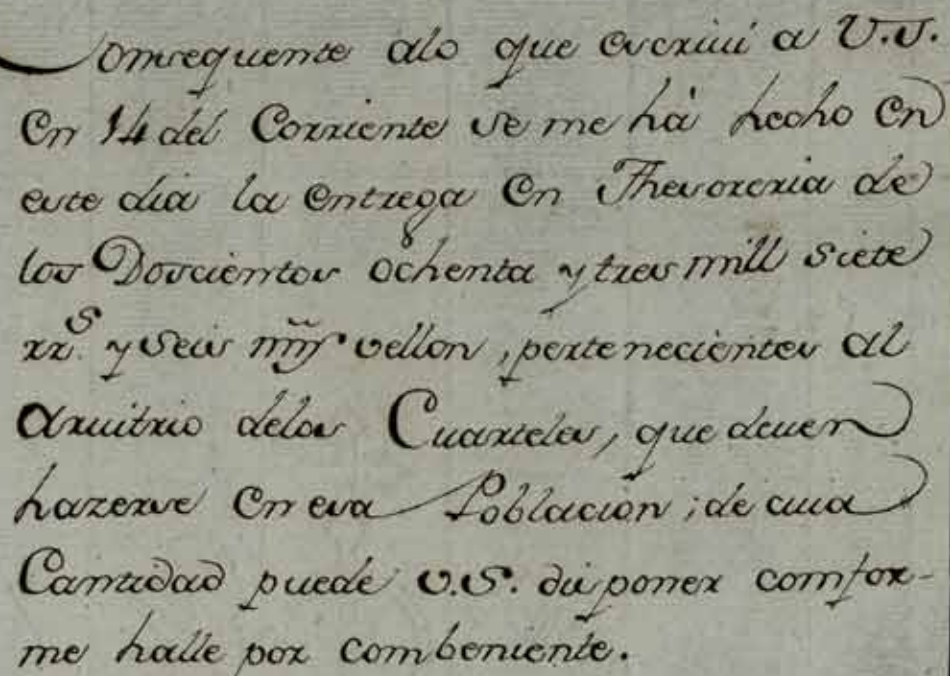 Consequente alo que escriui a V.S.
En 14 del Corriente se me há hecho En
este dia la entrega En Thesoreria de
los Doscientos ochenta y tres mill siete
rr.s y seis mrs vellon, pertenecientes al
Aruitrio delos Cuarteles, que deuen
hazerse En esa Poblacion; de cuia
Cantidad puede V.S. disponer comfor-
me halle por combeniente.